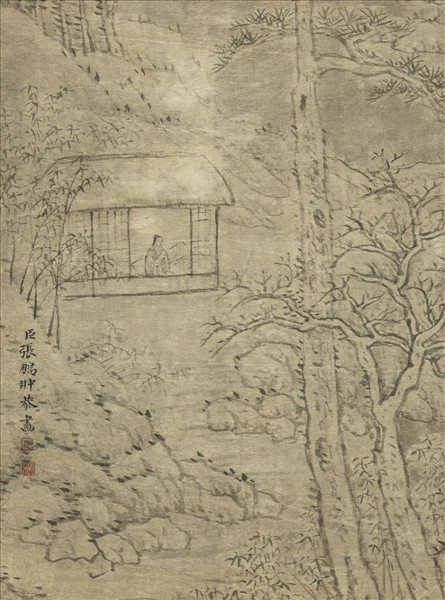 臣張鵬翀恭畫